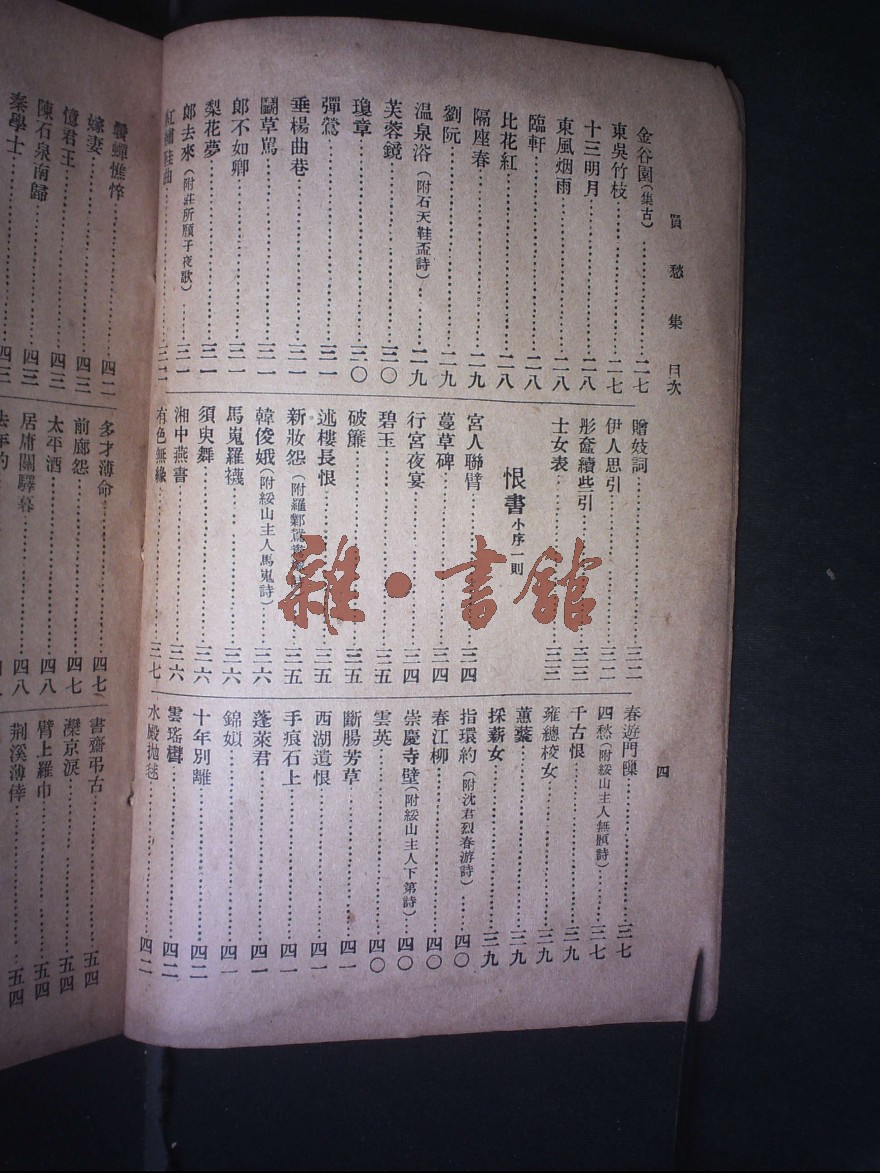 買愁集 目次
四
金谷園(集古)……二七
東吳竹枝……二七
十三明月……二八
東風烟雨……二八
臨軒……二八
比花紅……二八
隔座春……二九
劉阮……二九
温泉浴(附石天鞋盃詩)……二九
芙蓉鏡……三〇
瓊章……三〇
彈鶯……三一
垂楊曲巷……三一
鬭草罵……三一
郎不如卿……三一
梨花夢……三一
郎去來(附莊所願子夜歌)……三一
紅繡鞋曲……三二
贈妓詞……三二
伊人思引……三二
彤奩續些引……三三
士女表……三三
恨書 小序一則
宮人聯臂……三四
蔓草碑……三四
行宮夜宴……三四
碧玉……三五
破簾……三五
迷樓長恨……三五
新妝怨(附羅鄴
韓俊娥(附綏山主人馬嵬詩)……三六
馬嵬羅襪……三六
須臾舞……三六
湘中燕書……三六
有色無緣……三七
春遊門
四愁(附綏山主人無題詩)……三七
千古恨……三九
雍總校女……三九
薰蕕……三九
採薪女……三九
指環約(附沈君烈春游詩)……四〇
春江柳……四〇
崇慶寺壁(附綏山主人下第詩)……四〇
雲英……四〇
斷腸芳草……四一
西湖遺恨……四一
手痕石上……四一
蓬萊君……四一
錦娘……四一
十年別離……四二
雲瑤……四二
水殿拋毬……四二
蟬憔悴……四二
嫁妻……四三
憶君王……四三
陳石泉南歸……四三
秦學士……四三
多才薄命……四七
前廊怨……四七
太平酒……四八
居庸關驛……四八
書齋弔古……五四
灤京淚……五四
臂上羅巾……五四
荆溪薄倖……五四
雜·書館